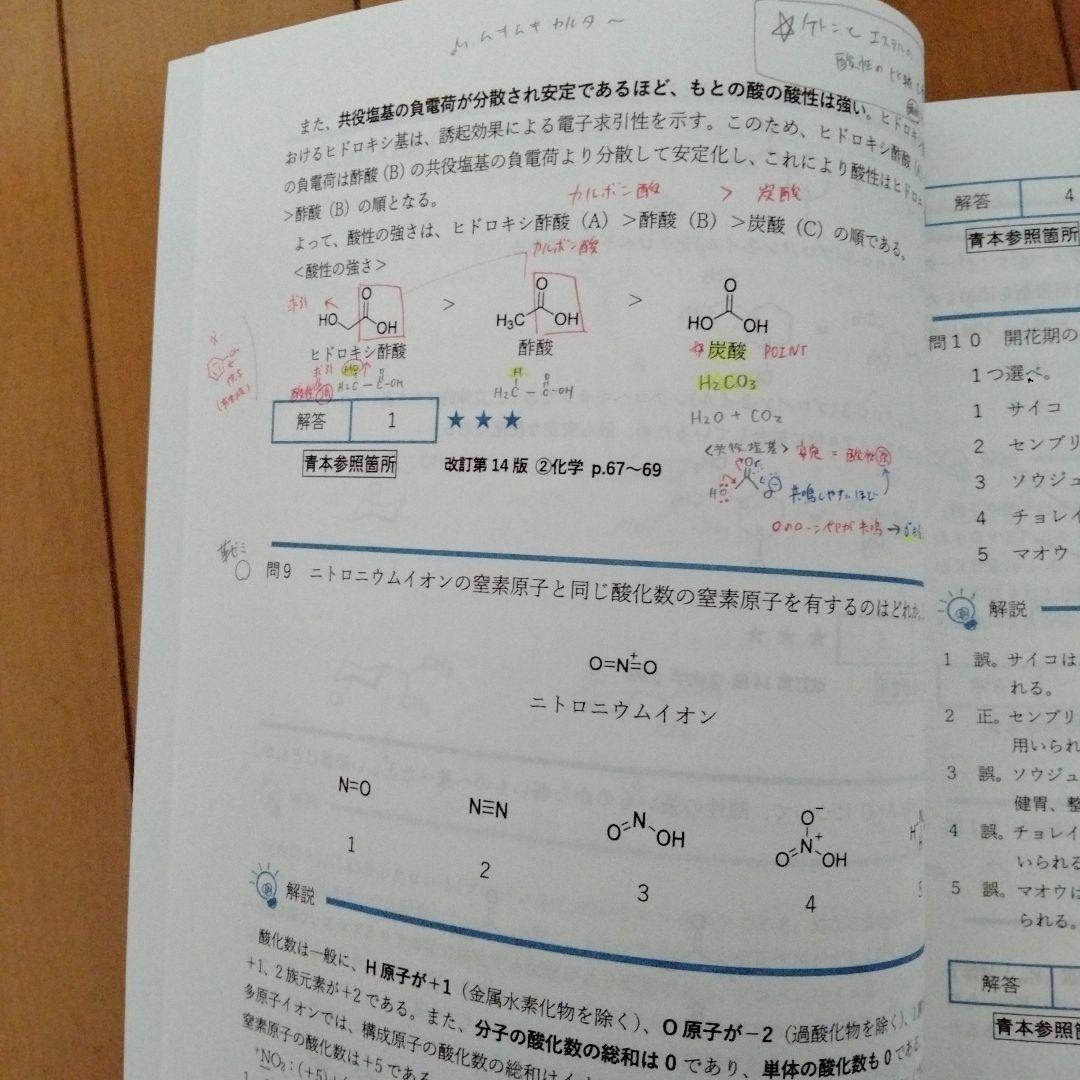 ムキムキ カルタ〜
☆ケトンと エステルの
酸性の
また、共役塩基の負電荷が分散され安定であるほど、もとの酸の酸性は強い。ヒドロキシ
おけるヒドロキシ基は、誘起効果による電子求引性を示す。このため、ヒドロキシ酢酸
の負電荷は酢酸（B）の共役塩基の負電荷より分散して安定化し、これにより酸性はヒドロ
>酢酸（B）の順となる。
カルボン酸 > 炭酸
よって、酸性の強さは、ヒドロキシ酢酸（A）>酢酸（B）>炭酸（C）の順である。
<酸性の強さ>
カルボン酸
求引
HO O OH > H₃C O OH > HO O OH
ヒドロキシ酢酸 酢酸 炭酸 POINT
求引 HO
H₂C－C－OH
H
H₂C－C－OH
H₂CO₃
H₂O + CO₂
解答 1 ★★★
青本参照箇所 改訂第14版 ②化学 p.67〜69
<共役塩基> 安定 = 酸性強
共鳴しやすいほど
薬ゼミ
○ 問9 ニトロニウムイオンの窒素原子と同じ酸化数の窒素原子を有するのはどれか。
O=N⁺=O
ニトロニウムイオン
N=O
1
N≡N
2
O=N OH
3
O⁻ O=N⁺ OH
4
解説
酸化数は一般に、H原子が+1（金属水素化物を除く）、O原子が−2（過酸化物を除く）、
+1、2族元素が+2である。また、分子の酸化数の総和は0であり、単体の酸化数も0である
多原子イオンでは、構成原子の酸化数の総和は
窒素原子の酸化数は+5である。
解答 4
青本参照箇所
問10 開花期の
1つ選べ。
1 サイコ
2 センブリ
3 ソウジュ
4 チョレイ
5 マオウ
解説
1 誤。サイコは
れる。
2 正。センブリ
用いられ
3 誤。ソウジュ
健胃、整
4 誤。チョレイ
いられる
5 誤。マオウは
られる。
解答
青本参照箇所